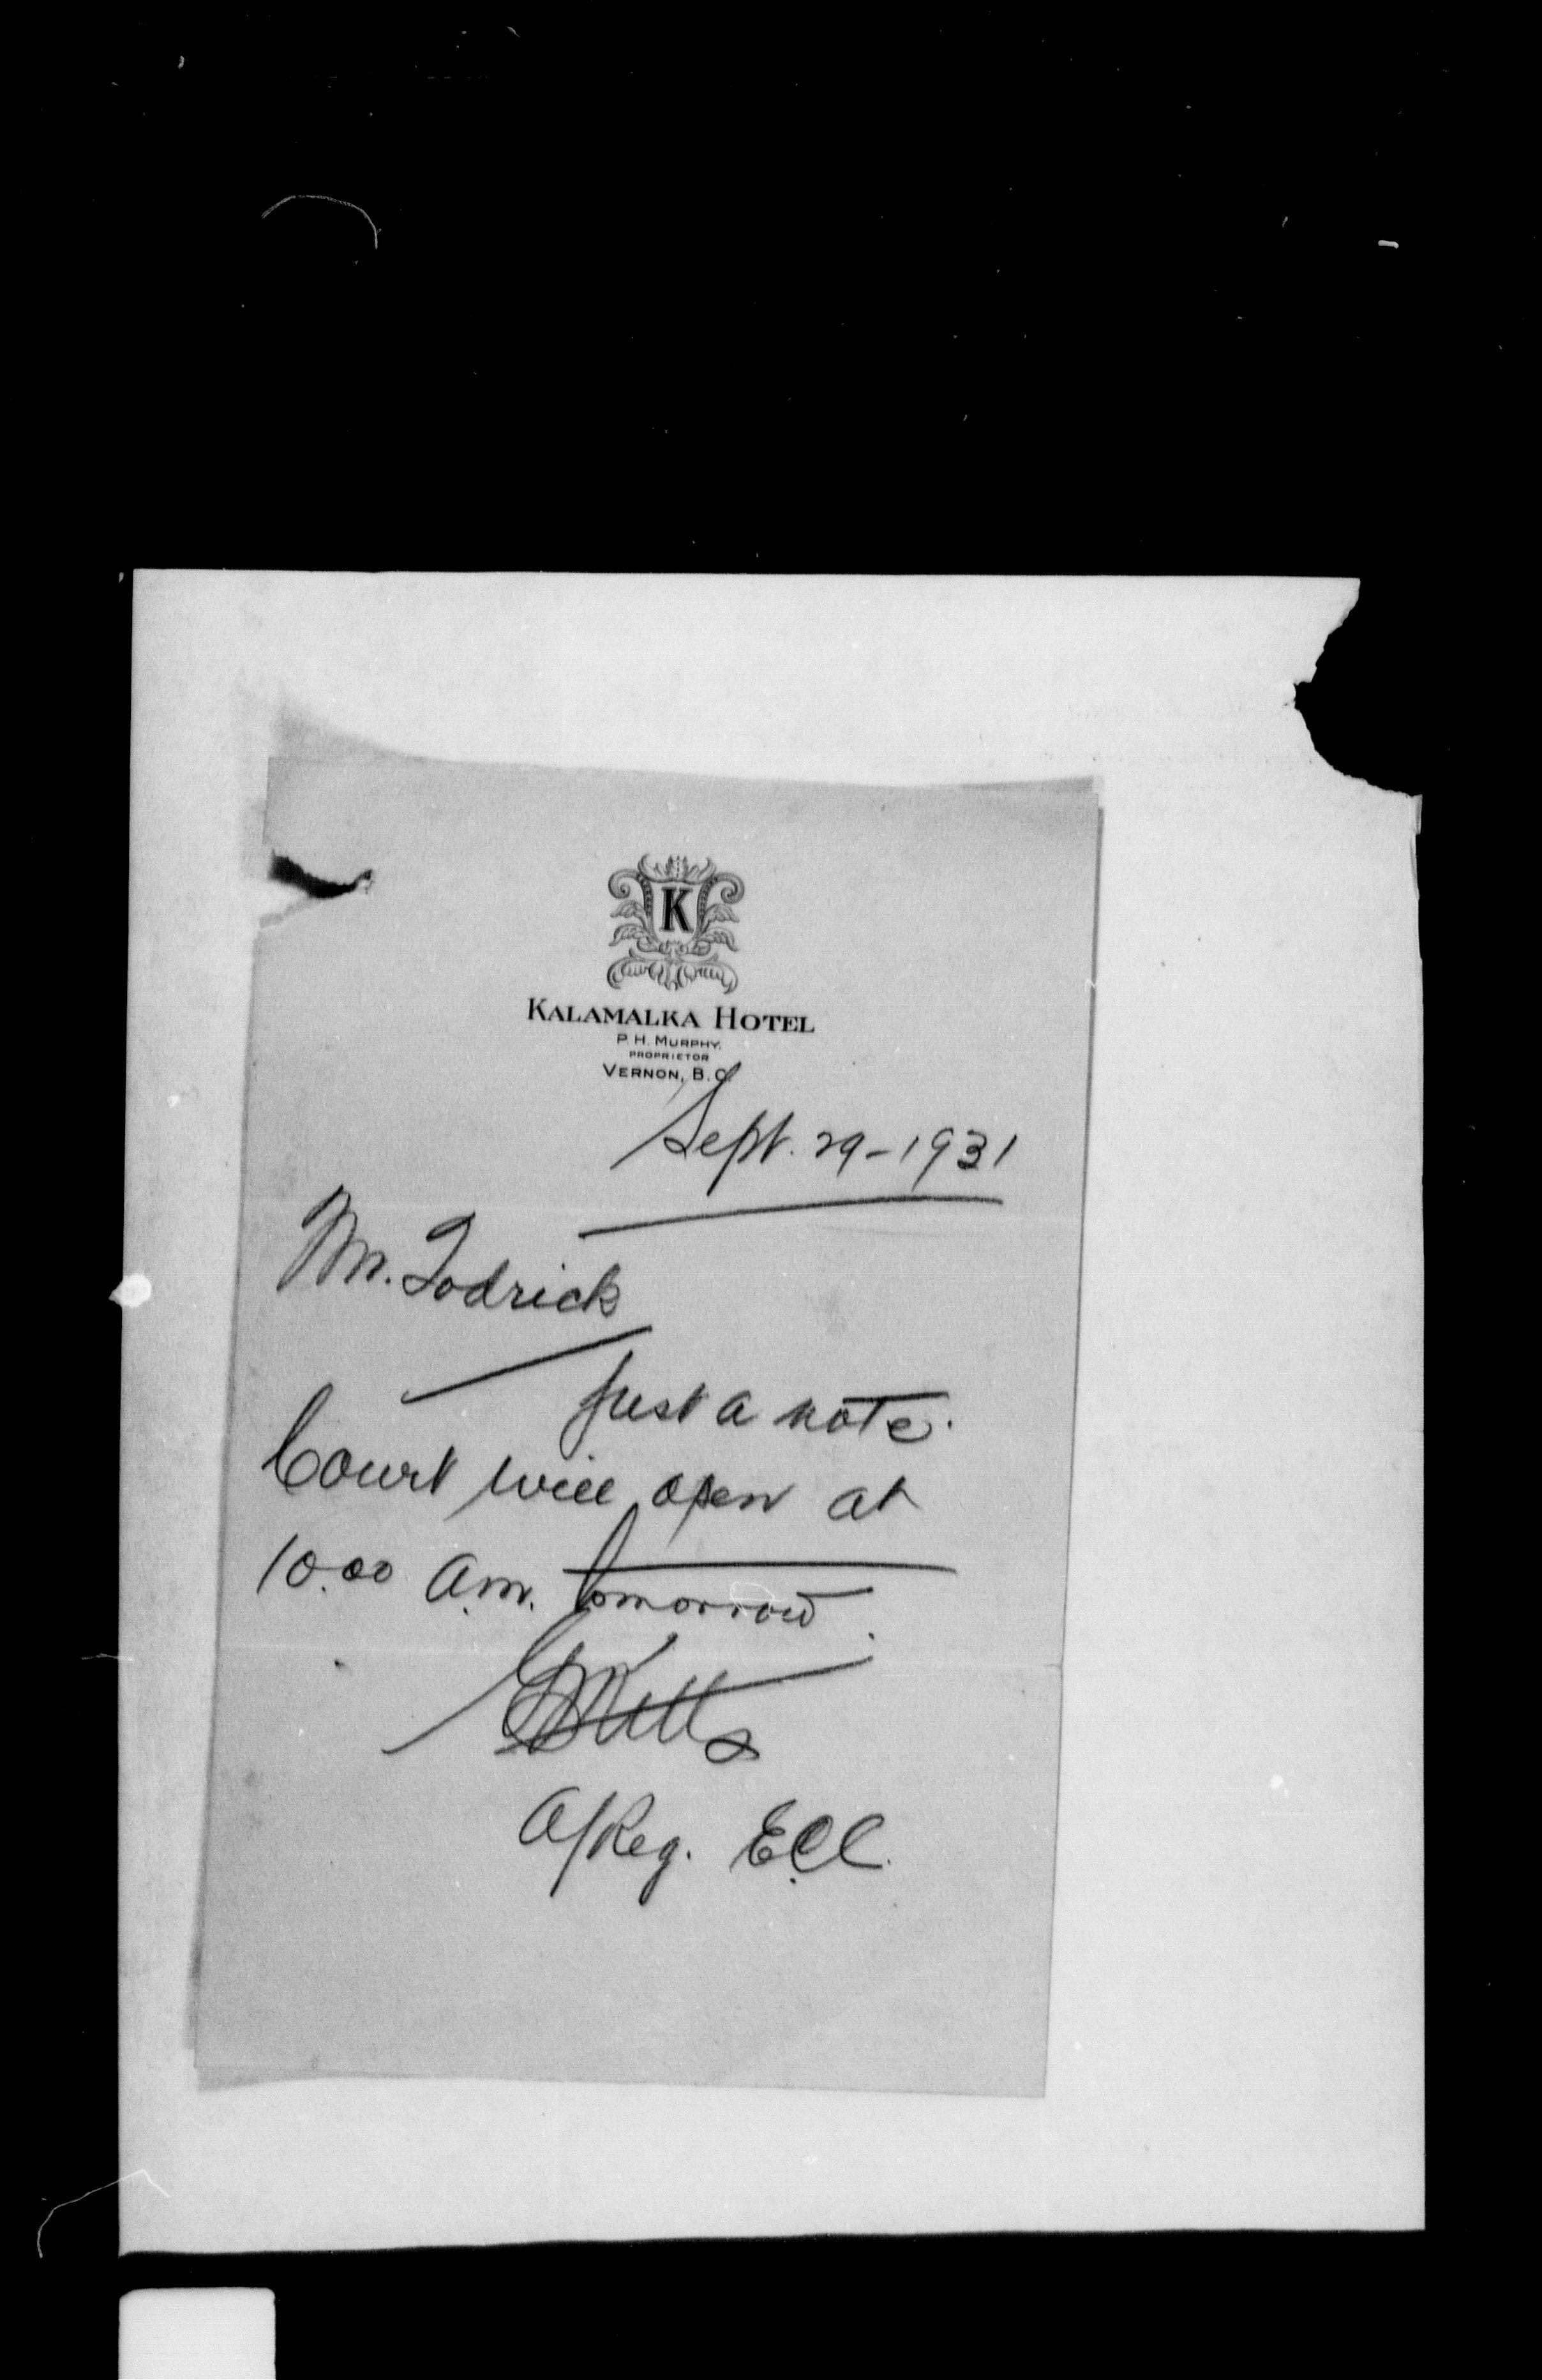 K
KALAMALKA HOTEL
P. H. MURPHY.
PROPRIETOR
VERNON, B. C.
Sept. 29-1931
Mr. Todrick
Just a note.
Court will open at
10.00 a.m. tomorrow.
A/Reg. E.C.C.